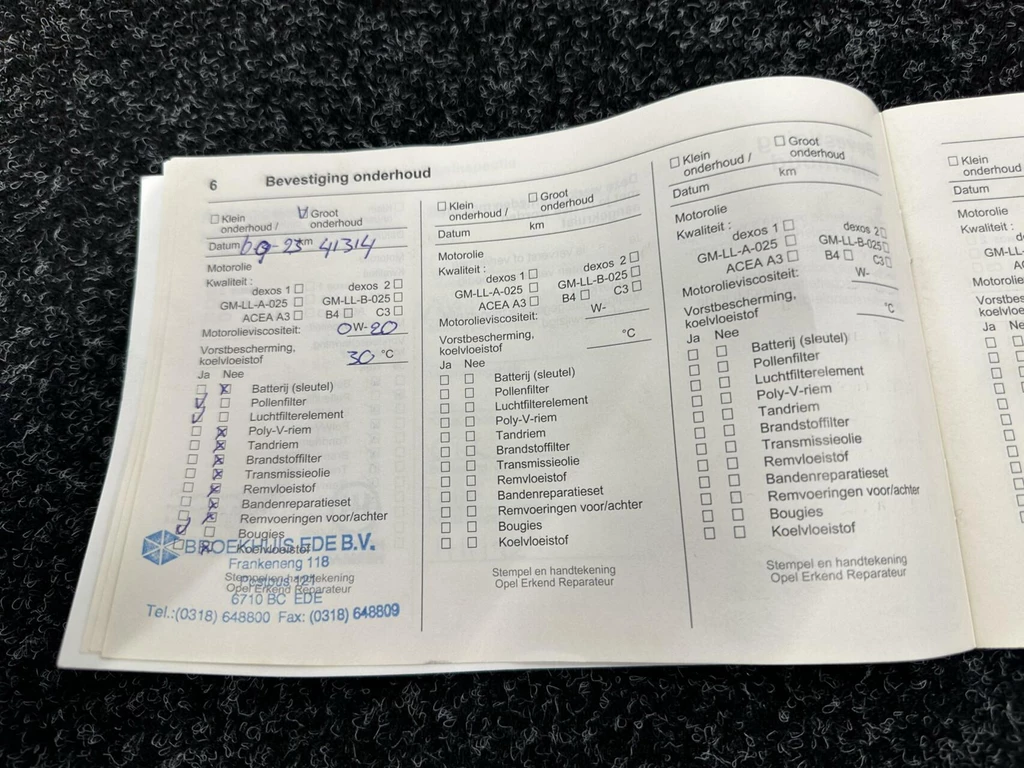 6 Bevestiging onderhoud
☐ Klein onderhoud / V Groot onderhoud
Datum 09-23 km 41314
Motorolie
Kwaliteit :
dexos 1 ☐ dexos 2 ☐
GM-LL-A-025 ☐ GM-LL-B-025 ☐
ACEA A3 ☐ B4 ☐ C3 ☐
Motorolieviscositeit: 0W-20
Vorstbescherming,
koelvloeistof 30 °C
Ja Nee
Batterij (sleutel)
Pollenfilter
Luchtfilterelement
Poly-V-riem
Tandriem
Brandstoffilter
Transmissieolie
Remvloeistof
Bandenreparatieset
Remvoeringen voor/achter
Bougies
Koelvloeistof
BROEKHUIS EDE B.V.
Frankeneng 118
Postbus 121
6710 BC EDE
Tel.:(0318) 648800 Fax: (0318) 648809
Stempel en handtekening
Opel Erkend Reparateur
☐ Klein onderhoud / ☐ Groot onderhoud
Datum km
Motorolie
Kwaliteit :
dexos 1 ☐ dexos 2 ☐
GM-LL-A-025 ☐ GM-LL-B-025 ☐
ACEA A3 ☐ B4 ☐ C3 ☐
Motorolieviscositeit: W-
Vorstbescherming,
koelvloeistof °C
Ja Nee
☐ ☐ Batterij (sleutel)
☐ ☐ Pollenfilter
☐ ☐ Luchtfilterelement
☐ ☐ Poly-V-riem
☐ ☐ Tandriem
☐ ☐ Brandstoffilter
☐ ☐ Transmissieolie
☐ ☐ Remvloeistof
☐ ☐ Bandenreparatieset
☐ ☐ Remvoeringen voor/achter
☐ ☐ Bougies
☐ ☐ Koelvloeistof
Stempel en handtekening
Opel Erkend Reparateur
☐ Klein onderhoud / ☐ Groot onderhoud
Datum km
Motorolie
Kwaliteit :
dexos 1 ☐ dexos 2 ☐
GM-LL-A-025 ☐ GM-LL-B-025 ☐
ACEA A3 ☐ B4 ☐ C3 ☐
Motorolieviscositeit: W-
Vorstbescherming,
koelvloeistof °C
Ja Nee
☐ ☐ Batterij (sleutel)
☐ ☐ Pollenfilter
☐ ☐ Luchtfilterelement
☐ ☐ Poly-V-riem
☐ ☐ Tandriem
☐ ☐ Brandstoffilter
☐ ☐ Transmissieolie
☐ ☐ Remvloeistof
☐ ☐ Bandenreparatieset
☐ ☐ Remvoeringen voor/achter
☐ ☐ Bougies
☐ ☐ Koelvloeistof
Stempel en handtekening
Opel Erkend Reparateur
☐ Klein
onderhoud /
Datum
Motorolie
Kwaliteit :
Ja